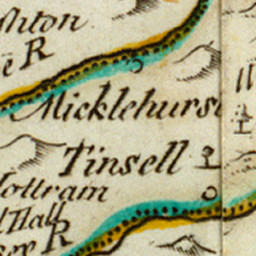 shton
R
Micklehurs
Tinsell
ottram
Hall
R